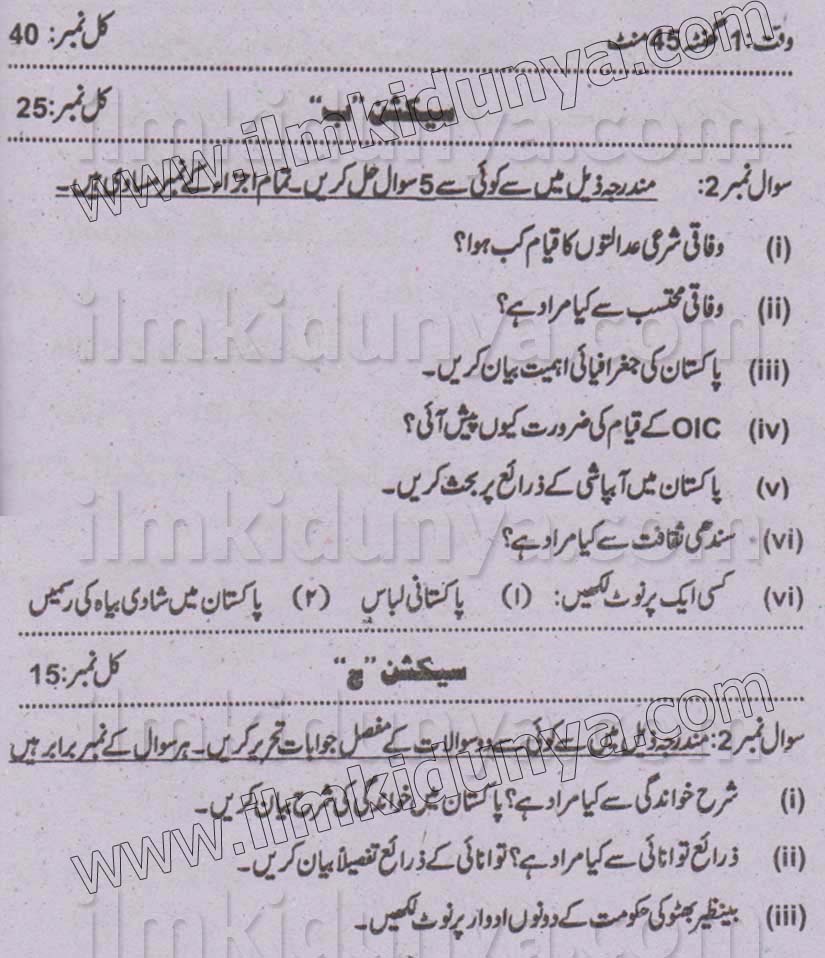 وقت: 1 گھنٹہ 45 منٹ کل نمبر: 40
سیکشن "ب" کل نمبر: 25
سوال نمبر 2: مندرجہ ذیل میں سے کوئی سے 5 سوال حل کریں۔ تمام اجزاء کے نمبر مساوی ہیں۔
(i) وفاقی شرعی عدالتوں کا قیام کب ہوا؟
(ii) وفاقی محتسب سے کیا مراد ہے؟
(iii) پاکستان کی جغرافیائی اہمیت بیان کریں۔
(iv) OIC کے قیام کی ضرورت کیوں پیش آئی؟
(v) پاکستان میں آبپاشی کے ذرائع پر بحث کریں۔
(vi) سندھی ثقافت سے کیا مراد ہے؟
(vi) کسی ایک پر نوٹ لکھیں: (۱) پاکستانی لباس (۲) پاکستان میں شادی بیاہ کی رسمیں
سیکشن "ج" کل نمبر: 15
سوال نمبر 2: مندرجہ ذیل میں سے کوئی سے دو سوالات کے مفصل جوابات تحریر کریں۔ ہر سوال کے نمبر برابر ہیں
(i) شرح خواندگی سے کیا مراد ہے؟ پاکستان میں خواندگی کی شرح بیان کریں۔
(ii) ذرائع توانائی سے کیا مراد ہے؟ توانائی کے ذرائع تفصیلاً بیان کریں۔
(iii) بینظیر بھٹو کی حکومت کے دونوں ادوار پر نوٹ لکھیں۔
www.ilmkidunya.com
ilmkidunya.com
ilmkidunya.com
ilmkidunya.com
ilmkidunya.com
www.ilmkidunya.com
ilmkidunya.com
ilmkidunya.com